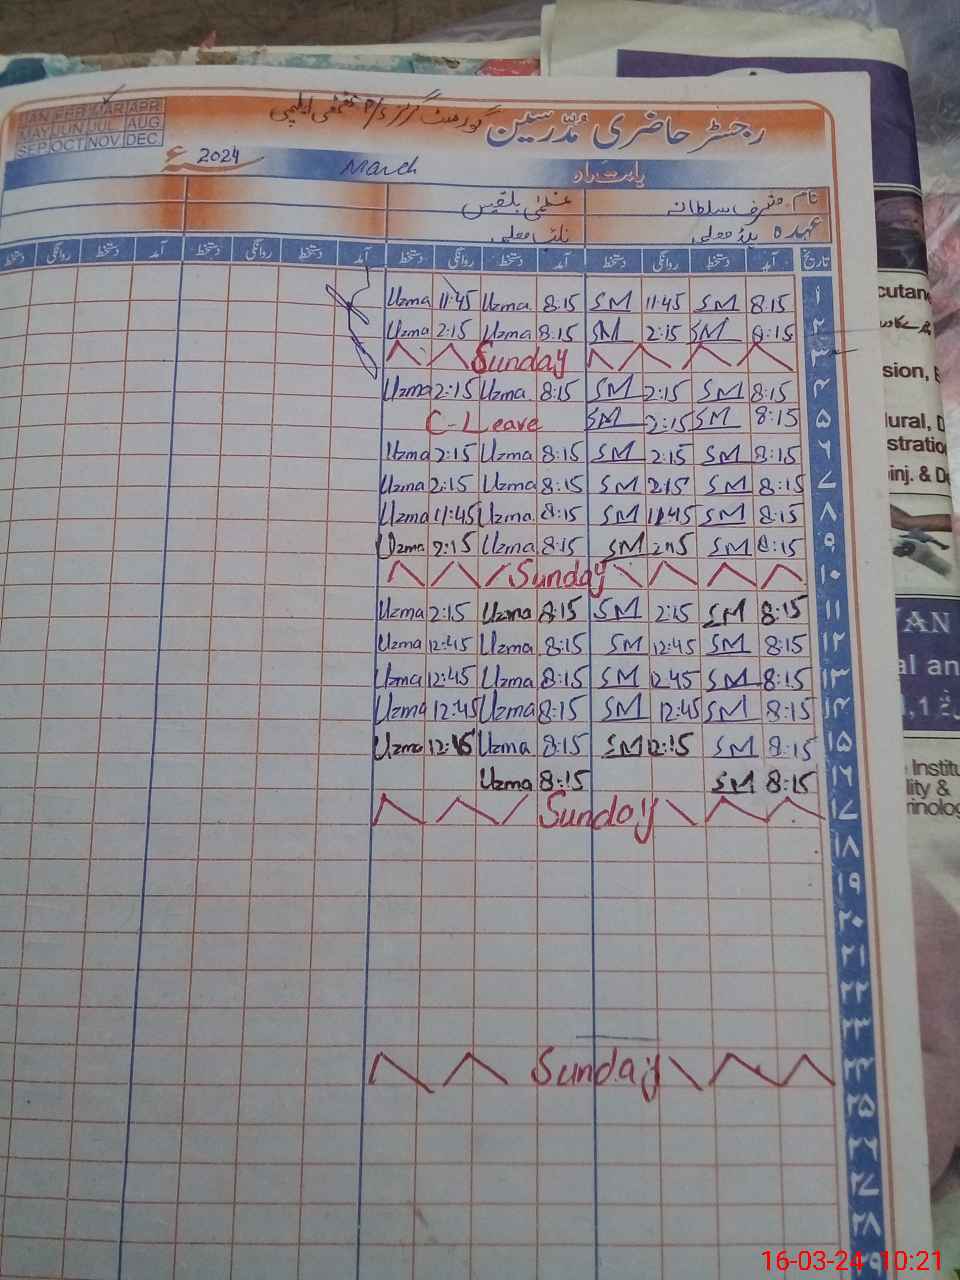 JAN FEB MAR APR
MAY JUN JUL AUG
SEP OCT NOV DEC
رجسٹر حاضری مدرسین
گورنمنٹ گرلز
بابت ماہ March 2024 ء
نام
عظمیٰ بلقیس
عہدہ
تاریخ آمد دستخط روانگی دستخط آمد دستخط روانگی دستخط آمد دستخط روانگی دستخط آمد دستخط روانگی دستخط
۱ 8:15 SM 11:45 SM 8:15 Uzma 11:45 Uzma
۲ 8:15 SM 2:15 SM 8:15 Uzma 2:15 Uzma
۳ Sunday
۴ 8:15 SM 2:15 SM 8:15 Uzma 2:15 Uzma
۵ 8:15 SM 2:15 SM C-Leave
۶ 8:15 SM 2:15 SM 8:15 Uzma 2:15 Uzma
۷ 8:15 SM 2:15 SM 8:15 Uzma 2:15 Uzma
۸ 8:15 SM 11:45 SM 8:15 Uzma 11:45 Uzma
۹ 8:15 SM 2:15 SM 8:15 Uzma 2:15 Uzma
۱۰ Sunday
۱۱ 8:15 SM 2:15 SM 8:15 Uzma 2:15 Uzma
۱۲ 8:15 SM 12:45 SM 8:15 Uzma 12:45 Uzma
۱۳ 8:15 SM 12:45 SM 8:15 Uzma 12:45 Uzma
۱۴ 8:15 SM 12:45 SM 8:15 Uzma 12:45 Uzma
۱۵ 8:15 SM 12:15 SM 8:15 Uzma 12:15 Uzma
۱۶ 8:15 SM 8:15 Uzma
۱۷ Sunday
۱۸
۱۹
۲۰
۲۱
۲۲
۲۳
۲۴ Sunday
۲۵
۲۶
۲۷
۲۸
۲۹
cutan
sion,
ural, D
stratio
inj. & De
AN
al an
Institu
lity &
rinolog
16-03-24 10:21